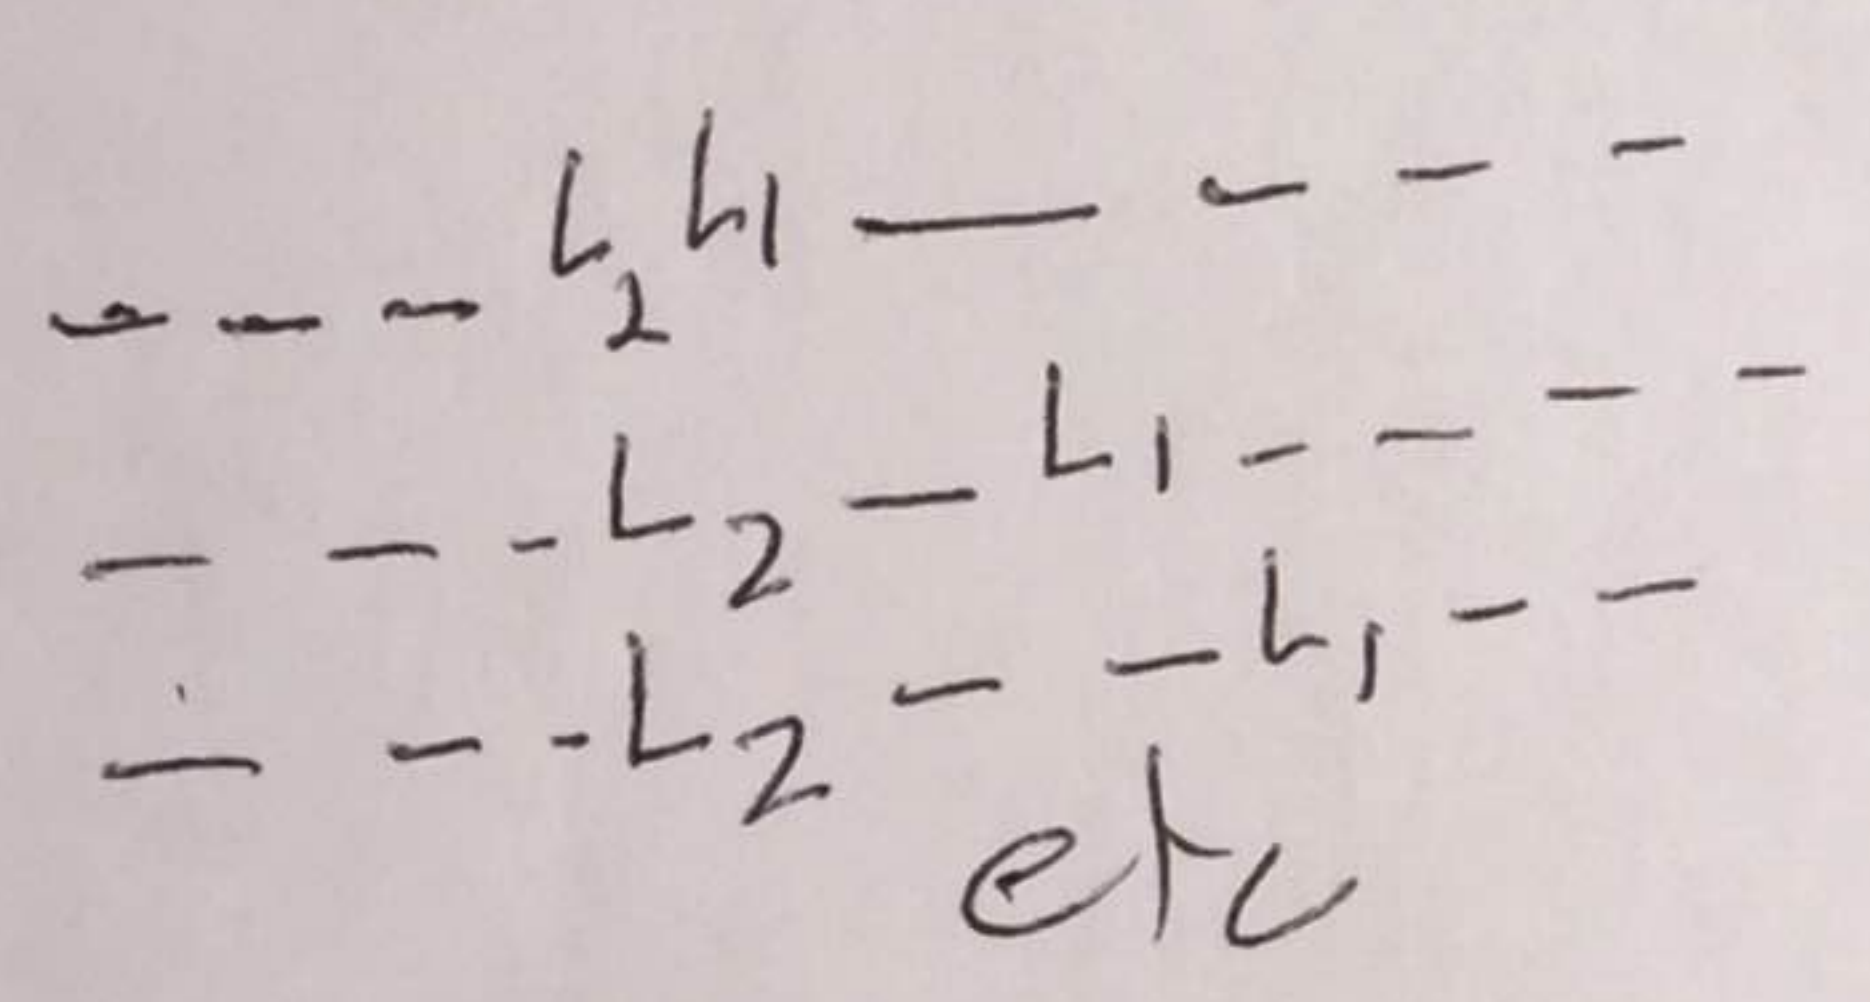 - - - L₂ L₁ — - - -
- - - L₂ — L₁ - - - -
- - - L₂ - - L₁ - -
etc